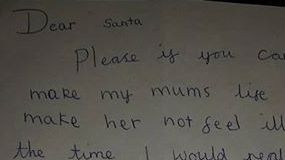 Dear Santa
Please if you
make my mums life
make her not feel
the time I would